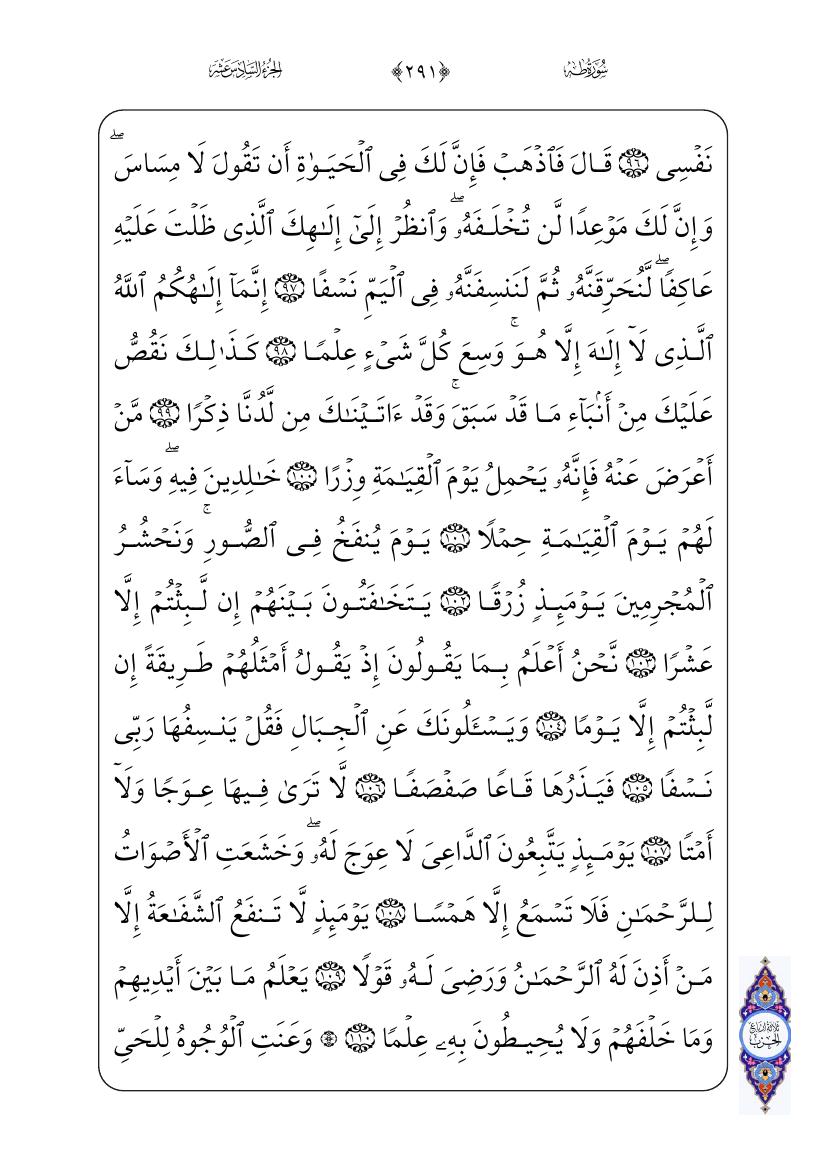 سُورَةُ طه ﴿٢٩١﴾ الجُزْءُ السَّادِسَ عَشَرَ
نَفۡسِى ٩٦ قَالَ فَٱذۡهَبۡ فَإِنَّ لَكَ فِى ٱلۡحَيَوٰةِ أَن تَقُولَ لَا مِسَاسَۖ
وَإِنَّ لَكَ مَوۡعِدًا لَّن تُخۡلَفَهُۥۖ وَٱنظُرۡ إِلَىٰٓ إِلَٰهِكَ ٱلَّذِى ظَلۡتَ عَلَيۡهِ
عَاكِفًاۖ لَّنُحَرِّقَنَّهُۥ ثُمَّ لَنَنسِفَنَّهُۥ فِى ٱلۡيَمِّ نَسۡفًا ٩٧ إِنَّمَآ إِلَٰهُكُمُ ٱللَّهُ
ٱلَّذِى لَآ إِلَٰهَ إِلَّا هُوَۚ وَسِعَ كُلَّ شَىۡءٍ عِلۡمًا ٩٨ كَذَٰلِكَ نَقُصُّ
عَلَيۡكَ مِنۡ أَنۢبَآءِ مَا قَدۡ سَبَقَۚ وَقَدۡ ءَاتَيۡنَٰكَ مِن لَّدُنَّا ذِكۡرًا ٩٩ مَّنۡ
أَعۡرَضَ عَنۡهُ فَإِنَّهُۥ يَحۡمِلُ يَوۡمَ ٱلۡقِيَٰمَةِ وِزۡرًا ١٠٠ خَٰلِدِينَ فِيهِۖ وَسَآءَ
لَهُمۡ يَوۡمَ ٱلۡقِيَٰمَةِ حِمۡلًا ١٠١ يَوۡمَ يُنفَخُ فِى ٱلصُّورِۚ وَنَحۡشُرُ
ٱلۡمُجۡرِمِينَ يَوۡمَئِذٍ زُرۡقًا ١٠٢ يَتَخَٰفَتُونَ بَيۡنَهُمۡ إِن لَّبِثۡتُمۡ إِلَّا
عَشۡرًا ١٠٣ نَّحۡنُ أَعۡلَمُ بِمَا يَقُولُونَ إِذۡ يَقُولُ أَمۡثَلُهُمۡ طَرِيقَةً إِن
لَّبِثۡتُمۡ إِلَّا يَوۡمًا ١٠٤ وَيَسۡـَٔلُونَكَ عَنِ ٱلۡجِبَالِ فَقُلۡ يَنسِفُهَا رَبِّى
نَسۡفًا ١٠٥ فَيَذَرُهَا قَاعًا صَفۡصَفًا ١٠٦ لَّا تَرَىٰ فِيهَا عِوَجًا وَلَآ
أَمۡتًا ١٠٧ يَوۡمَئِذٍ يَتَّبِعُونَ ٱلدَّاعِىَ لَا عِوَجَ لَهُۥۖ وَخَشَعَتِ ٱلۡأَصۡوَاتُ
لِلرَّحۡمَٰنِ فَلَا تَسۡمَعُ إِلَّا هَمۡسًا ١٠٨ يَوۡمَئِذٍ لَّا تَنفَعُ ٱلشَّفَٰعَةُ إِلَّا
مَنۡ أَذِنَ لَهُ ٱلرَّحۡمَٰنُ وَرَضِىَ لَهُۥ قَوۡلًا ١٠٩ يَعۡلَمُ مَا بَيۡنَ أَيۡدِيهِمۡ
وَمَا خَلۡفَهُمۡ وَلَا يُحِيطُونَ بِهِۦ عِلۡمًا ١١٠ ۞ وَعَنَتِ ٱلۡوُجُوهُ لِلۡحَىِّ
ثلاثة أرباع
الحزب